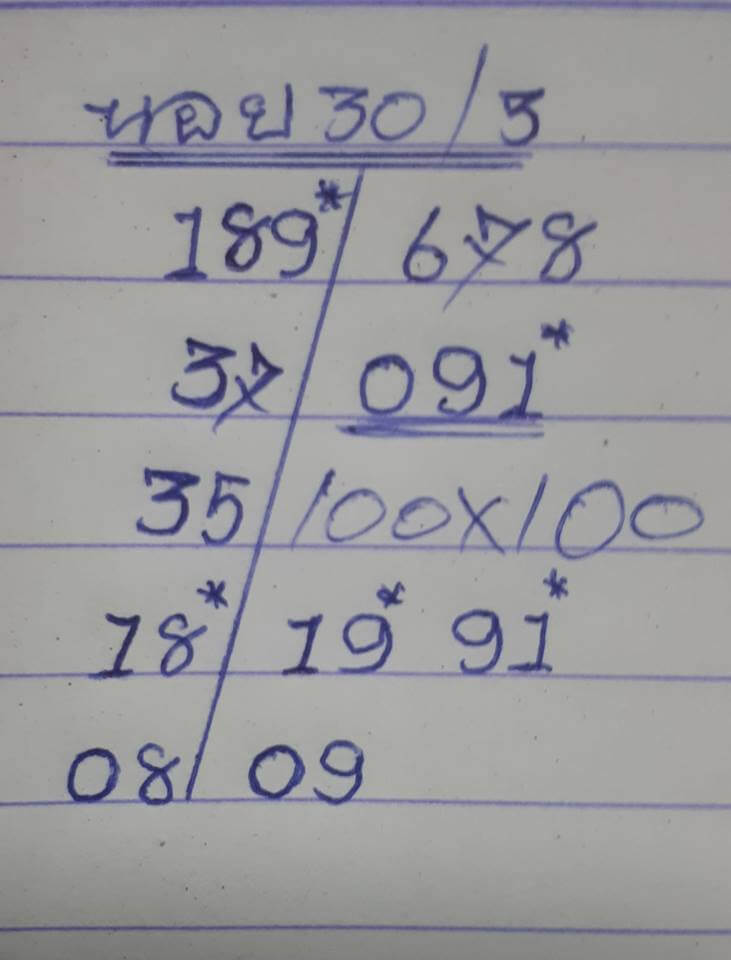 หอย 30/3
189* 678
37 091*
35 100X100
18* 19* 91*
08 09